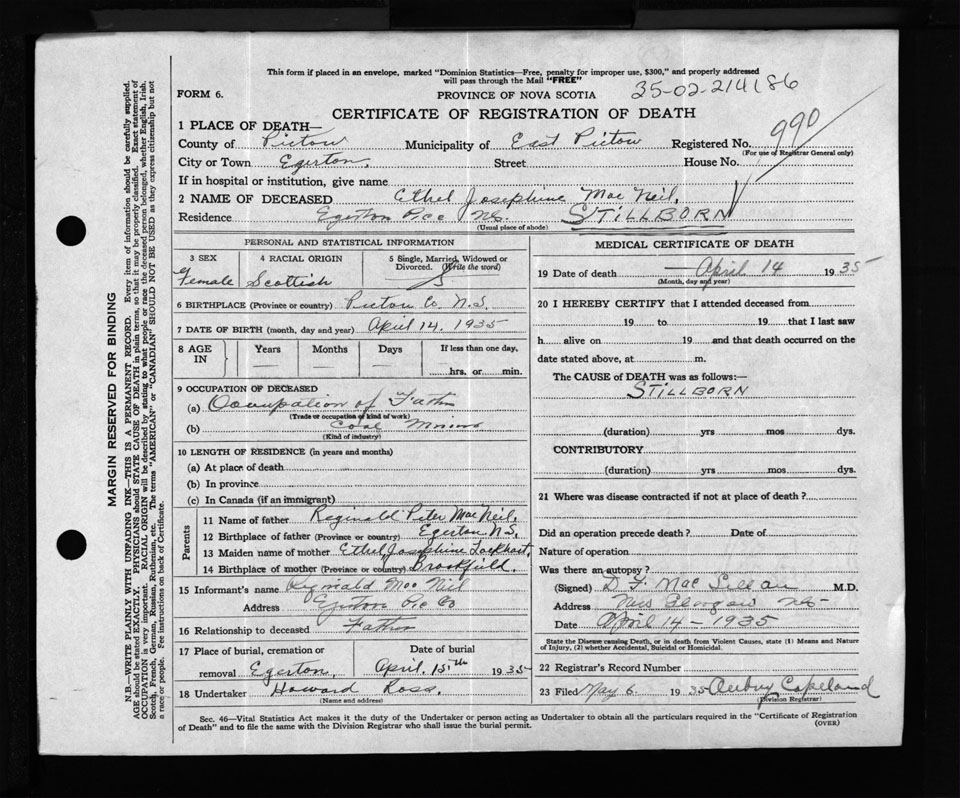 This form if placed in an envelope, marked "Dominion Statistics—Free, penalty for improper use, $300," and properly addressed
will pass through the Mail "FREE"
FORM 6.
PROVINCE OF NOVA SCOTIA
35-02-214186
CERTIFICATE OF REGISTRATION OF DEATH
990
1 PLACE OF DEATH—
County of Pictou Municipality of East Pictou Registered No.
(For use of Registrar General only)
City or Town Egerton, Street House No.
If in hospital or institution, give name
2 NAME OF DECEASED Ethel Josephine Mac Neil,
Residence Egerton Pic Co NS. STILLBORN
(Usual place of abode)
PERSONAL AND STATISTICAL INFORMATION
3 SEX 4 RACIAL ORIGIN 5 Single, Married, Widowed or Divorced. (Write the word)
Female Scottish S
6 BIRTHPLACE (Province or country) Pictou Co. N.S.
7 DATE OF BIRTH (month, day and year) April 14. 1935
8 AGE IN Years Months Days If less than one day,
hrs. or min.
9 OCCUPATION OF DECEASED
(a) Occupation of Father
(Trade or occupation or kind of work)
(b) Coal Mining
(Kind of industry)
10 LENGTH OF RESIDENCE (in years and months)
(a) At place of death
(b) In province
(c) In Canada (if an immigrant)
Parents
11 Name of father Reginald Peter Mac Neil,
12 Birthplace of father (Province or country) Egerton N.S.
13 Maiden name of mother Ethel Josephine Lockhart,
14 Birthplace of mother (Province or country) Brookfield.
15 Informant's name Reginald Mac Neil
Address Egerton Pic Co
16 Relationship to deceased Father
17 Place of burial, cremation or removal Date of burial
Egerton, April. 15th 1935
18 Undertaker Howard Ross.
(Name and address)
MEDICAL CERTIFICATE OF DEATH
19 Date of death April 14 1935
(Month, day and year)
20 I HEREBY CERTIFY that I attended deceased from
19 to 19 that I last saw
h alive on 19 and that death occurred on the
date stated above, at m.
The CAUSE of DEATH was as follows:—
STILLBORN
(duration) yrs mos dys.
CONTRIBUTORY
(duration) yrs mos dys.
21 Where was disease contracted if not at place of death?
Did an operation precede death? Date of
Nature of operation
Was there an autopsy?
(Signed) D F Mac Lellan M.D.
Address New Glasgow NS
Date April 14 - 1935
State the Disease causing Death, or in death from Violent Causes, state (1) Means and Nature
of Injury, (2) whether Accidental, Suicidal or Homicidal.
22 Registrar's Record Number
23 Filed May 6. 1935 Copeland
(Division Registrar)
Sec. 46—Vital Statistics Act makes it the duty of the Undertaker or person acting as Undertaker to obtain all the particulars required in the "Certificate of Registration
of Death" and to file the same with the Division Registrar who shall issue the burial permit.
(OVER)
MARGIN RESERVED FOR BINDING
N.B.—WRITE PLAINLY WITH UNFADING INK—THIS IS A PERMANENT RECORD. Every item of information should be carefully supplied.
AGE should be stated EXACTLY. PHYSICIANS should STATE CAUSE OF DEATH in plain terms, so that it may be properly classified. Exact statement of
OCCUPATION is very important. RACIAL ORIGIN will be described by stating to what people or race the deceased person belonged, whether English, Irish,
Scotch, French, German, Russian, Ruthenian, etc. The terms "AMERICAN" or "CANADIAN" SHOULD NOT BE USED as they express citizenship but not
a race or people. Fee instructions on back of Certificate.